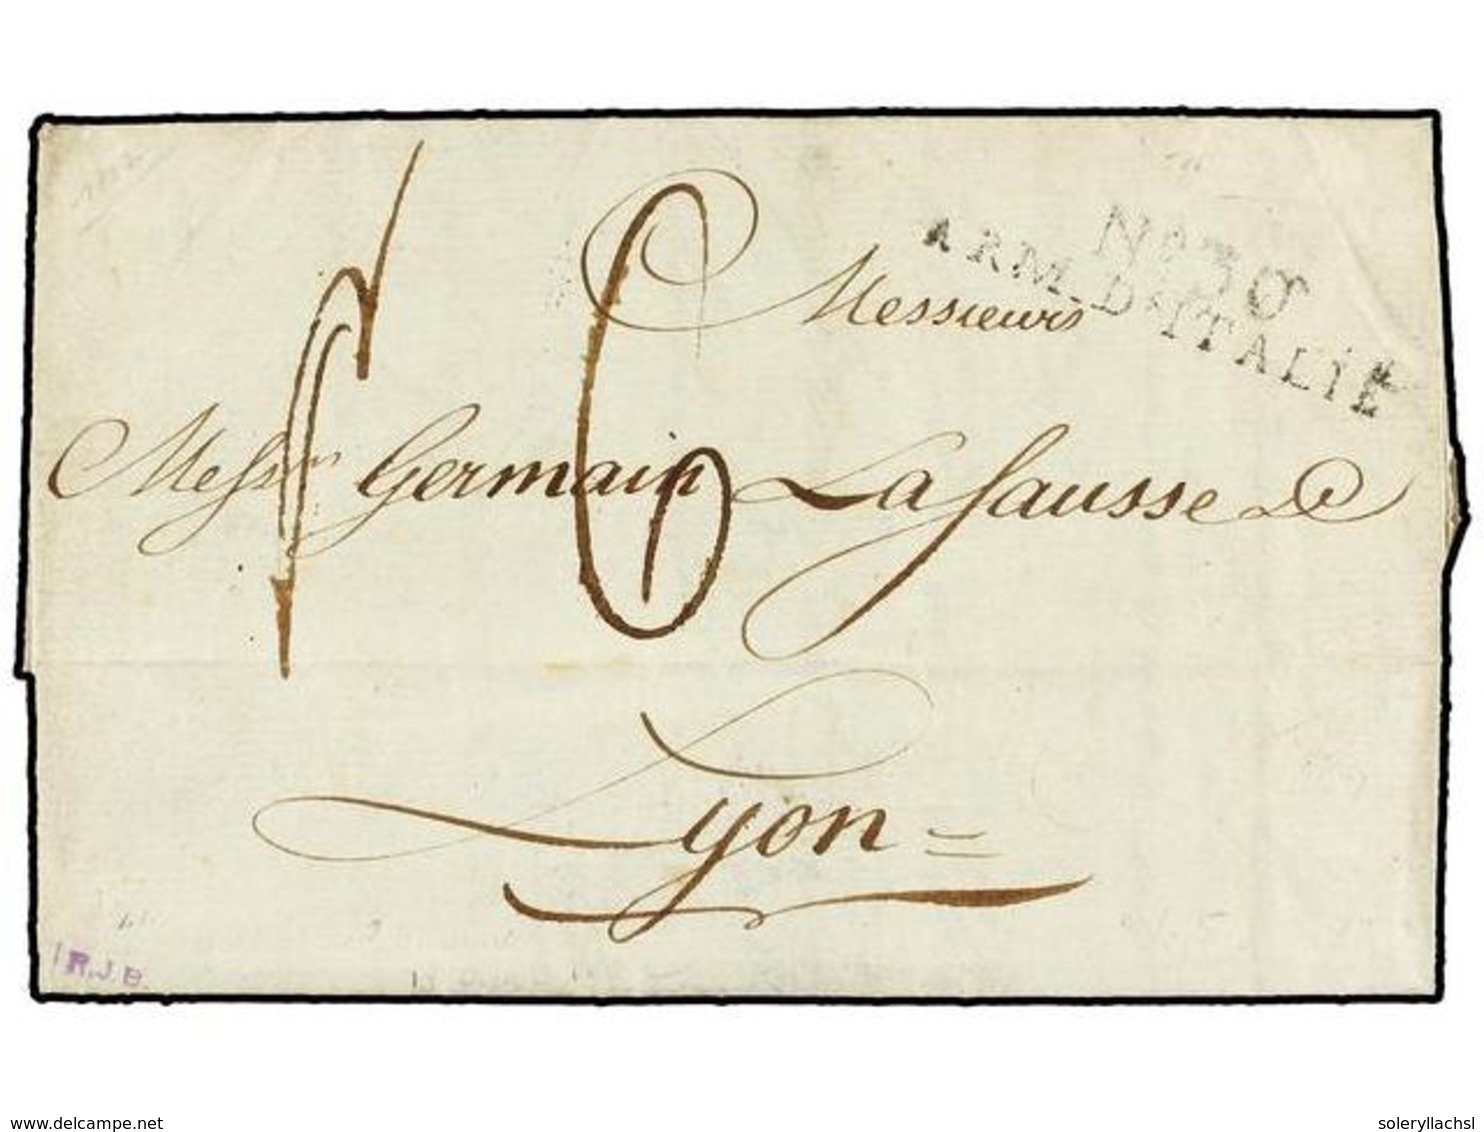 Nº 30
ARM. D'ITALIE
Messieurs
Mess.rs Germain Lafausse &
6
Lyon =
R.J.B.
www.delcampe.net
soleryllachsl